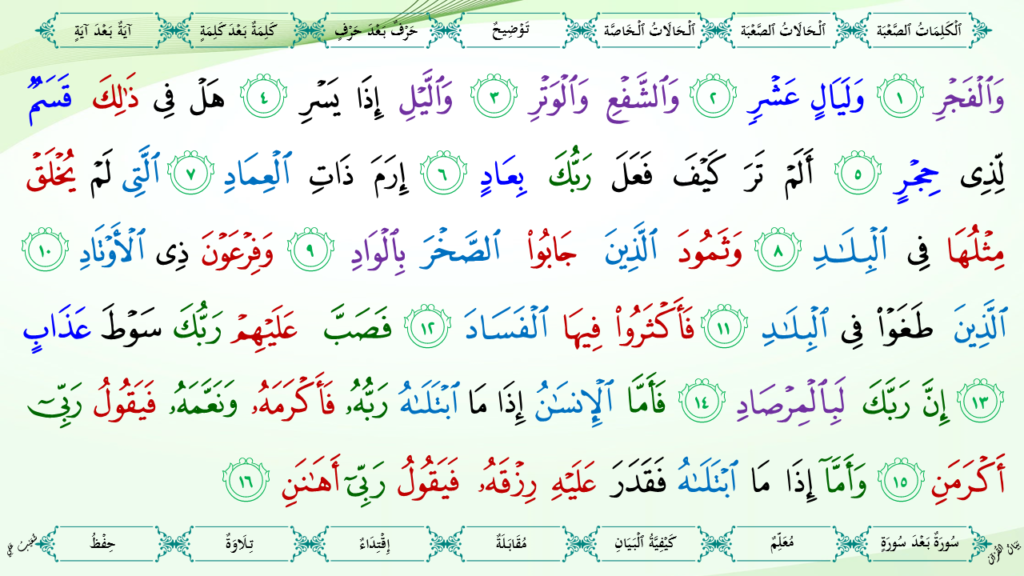 اَلْكَلِمَاتُ الصَّعْبَة اَلْحَالَاتُ الصَّعْبَة اَلْحَالَاتُ الْخَاصَّة تَوْضِيحٌ حَرْفٌ بَعْدَ حَرْفٍ كَلِمَةٌ بَعْدَ كَلِمَةٍ آيَةٌ بَعْدَ آيَةٍ
وَٱلۡفَجۡرِ ١ وَلَيَالٍ عَشۡرٖ ٢ وَٱلشَّفۡعِ وَٱلۡوَتۡرِ ٣ وَٱلَّيۡلِ إِذَا يَسۡرِ ٤ هَلۡ فِي ذَٰلِكَ قَسَمٞ
لِّذِي حِجۡرٍ ٥ أَلَمۡ تَرَ كَيۡفَ فَعَلَ رَبُّكَ بِعَادٍ ٦ إِرَمَ ذَاتِ ٱلۡعِمَادِ ٧ ٱلَّتِي لَمۡ يُخۡلَقۡ
مِثۡلُهَا فِي ٱلۡبِلَٰدِ ٨ وَثَمُودَ ٱلَّذِينَ جَابُواْ ٱلصَّخۡرَ بِٱلۡوَادِ ٩ وَفِرۡعَوۡنَ ذِي ٱلۡأَوۡتَادِ ١٠
ٱلَّذِينَ طَغَوۡاْ فِي ٱلۡبِلَٰدِ ١١ فَأَكۡثَرُواْ فِيهَا ٱلۡفَسَادَ ١٢ فَصَبَّ عَلَيۡهِمۡ رَبُّكَ سَوۡطَ عَذَابٍ
١٣ إِنَّ رَبَّكَ لَبِٱلۡمِرۡصَادِ ١٤ فَأَمَّا ٱلۡإِنسَٰنُ إِذَا مَا ٱبۡتَلَىٰهُ رَبُّهُۥ فَأَكۡرَمَهُۥ وَنَعَّمَهُۥ فَيَقُولُ رَبِّيٓ
أَكۡرَمَنِ ١٥ وَأَمَّآ إِذَا مَا ٱبۡتَلَىٰهُ فَقَدَرَ عَلَيۡهِ رِزۡقَهُۥ فَيَقُولُ رَبِّيٓ أَهَٰنَنِ ١٦
سُورَةٌ بَعْدَ سُورَةٍ مُعَلِّمٌ كَيْفِيَّةُ الْبَيَانِ مُقَابَلَةٌ إِقْتِدَاءٌ تِلَاوَةٌ حِفْظٌ